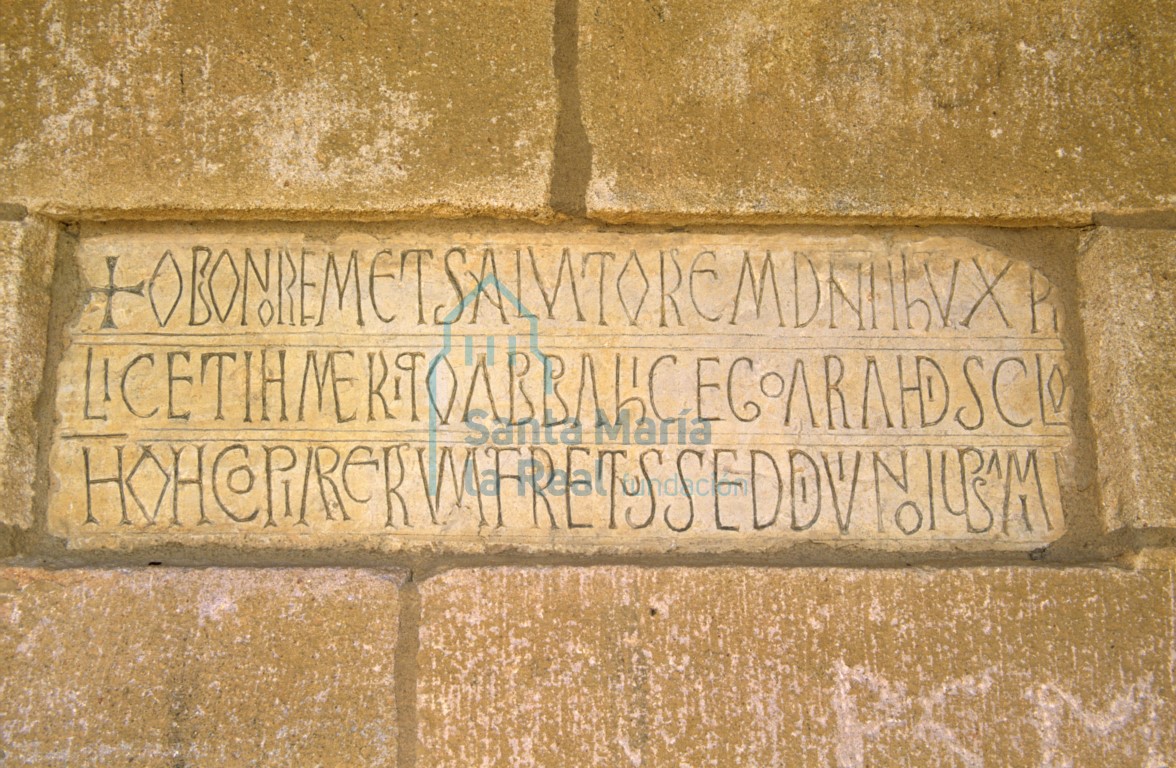 + OBONOREMETSALVATOREMDNIIHVXPI
LICETIHMERITOABBAHICEGOARAHDSCLO
HOHCOPIRERVHTFRETSSEDDIVINOIUBAM
Santa María
la Real fundación